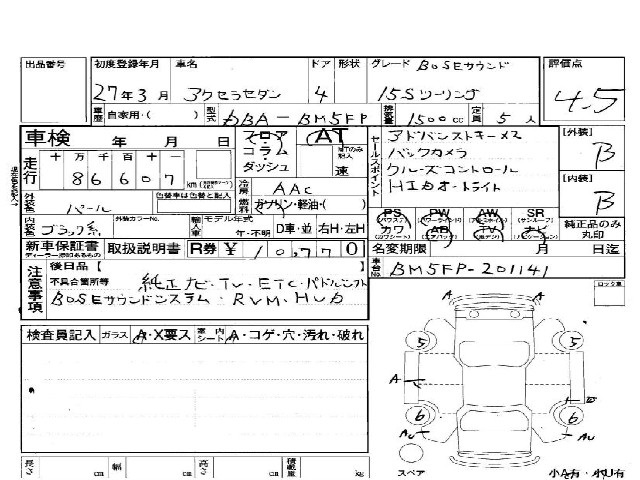 出品番号 初度登録年月 車名 ドア 形状 グレード BOSEサウンド 評価点
27年3月 アクセラセダン 4 15Sツーリング 4.5
車歴 自家用・( ) 型式 DBA-BM5FP 排気量 1500cc 定員 5人
車検 年 月 日 フロア AT セールスポイント アドバンストキーメス [外装]
走行 十万千百十一 コラム バックカメラ B
86607 km ダッシュ 速 クルーズコントロール [内装]
冷房 AAC HIDオートライト B
外装色 パール 色替車は色替と記入 燃料 ガソリン・軽油・( )
PS PW AW SR
内装色 ブラック系 外装カラーNo. 輸入車 モデル年式 年・不明 D車・並 右H・左H カワ AB TV ナビ 純正品のみ丸印
新車保証書 取扱説明書 R券 ¥10,770 名変期限 月 日迄
ディーラー添印あるもの
注意事項 後日品【 】 車台No. BM5FP-201141
不具合箇所等 純正ナビ・TV・ETC・パドルシフト
BOSEサウンドシステム・RVM・HUD
ロック車
検査員記入 ガラス A・X要ス 室内シート A・コゲ・穴・汚れ・破れ
A A
5 5
A
6 6
AU AU
長さ cm 幅 cm 高さ cm 積載量 kg スペア 小A有・小U有